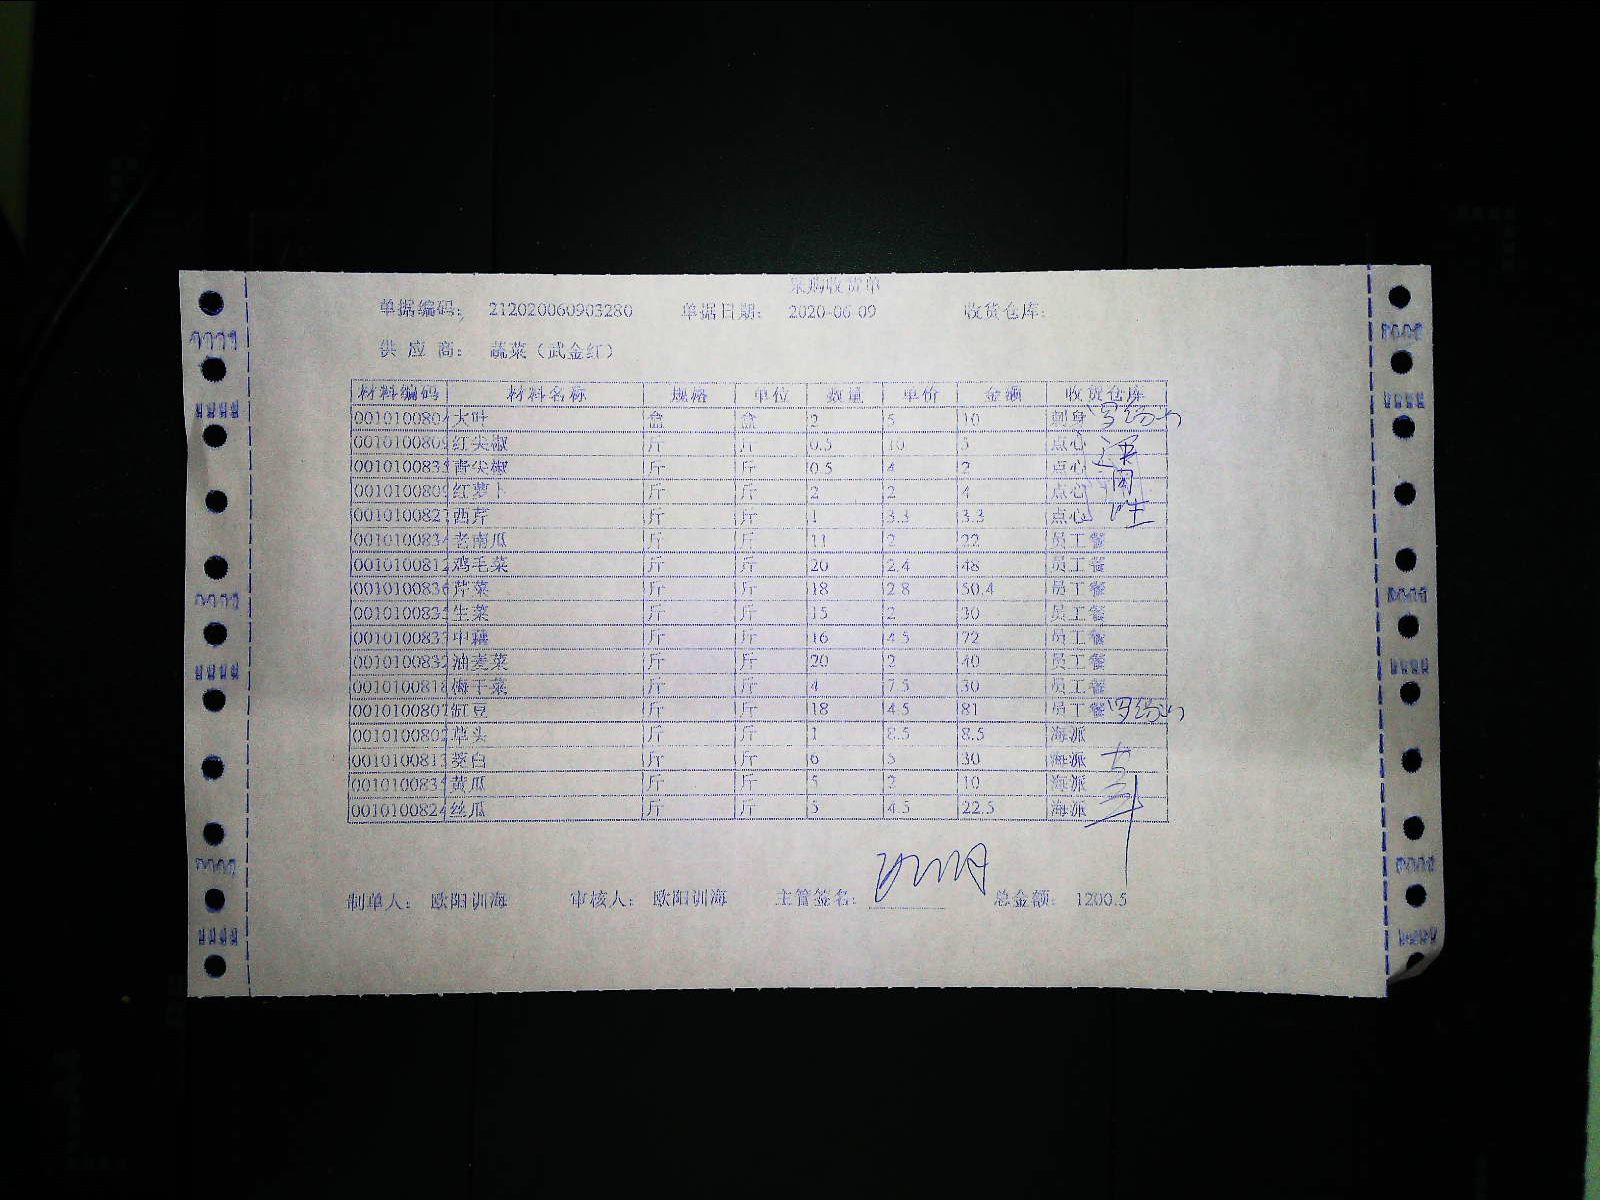 采购收货单
单据编码: 212020060903280 单据日期: 2020-06-09 收货仓库:
供 应 商: 蔬菜（武金红）
材料编码 材料名称 规格 单位 数量 单价 金额 收货仓库
0010100804 大叶 盒 盒 2 5 10 刺身
001010080 红尖椒 斤 斤 0.5 10 5 点心
001010083 青尖椒 斤 斤 0.5 4 2 点心
001010080 红萝卜 斤 斤 2 2 4 点心
001010082 西芹 斤 斤 1 3.3 3.3 点心
001010083 老南瓜 斤 斤 11 2 22 员工餐
0010100812 鸡毛菜 斤 斤 20 2.4 48 员工餐
001010083 芹菜 斤 斤 18 2.8 50.4 员工餐
001010083 生菜 斤 斤 15 2 30 员工餐
001010083 中藕 斤 斤 16 4.5 72 员工餐
001010083 油麦菜 斤 斤 20 2 40 员工餐
001010081 梅干菜 斤 斤 4 7.5 30 员工餐
0010100807 缸豆 斤 斤 18 4.5 81 员工餐
001010080 草头 斤 斤 1 8.5 8.5 海派
001010081 茭白 斤 斤 6 5 30 海派
001010083 黄瓜 斤 斤 5 2 10 海派
0010100824 丝瓜 斤 斤 5 4.5 22.5 海派
制单人: 欧阳训海 审核人: 欧阳训海 主管签名: 总金额: 1200.5